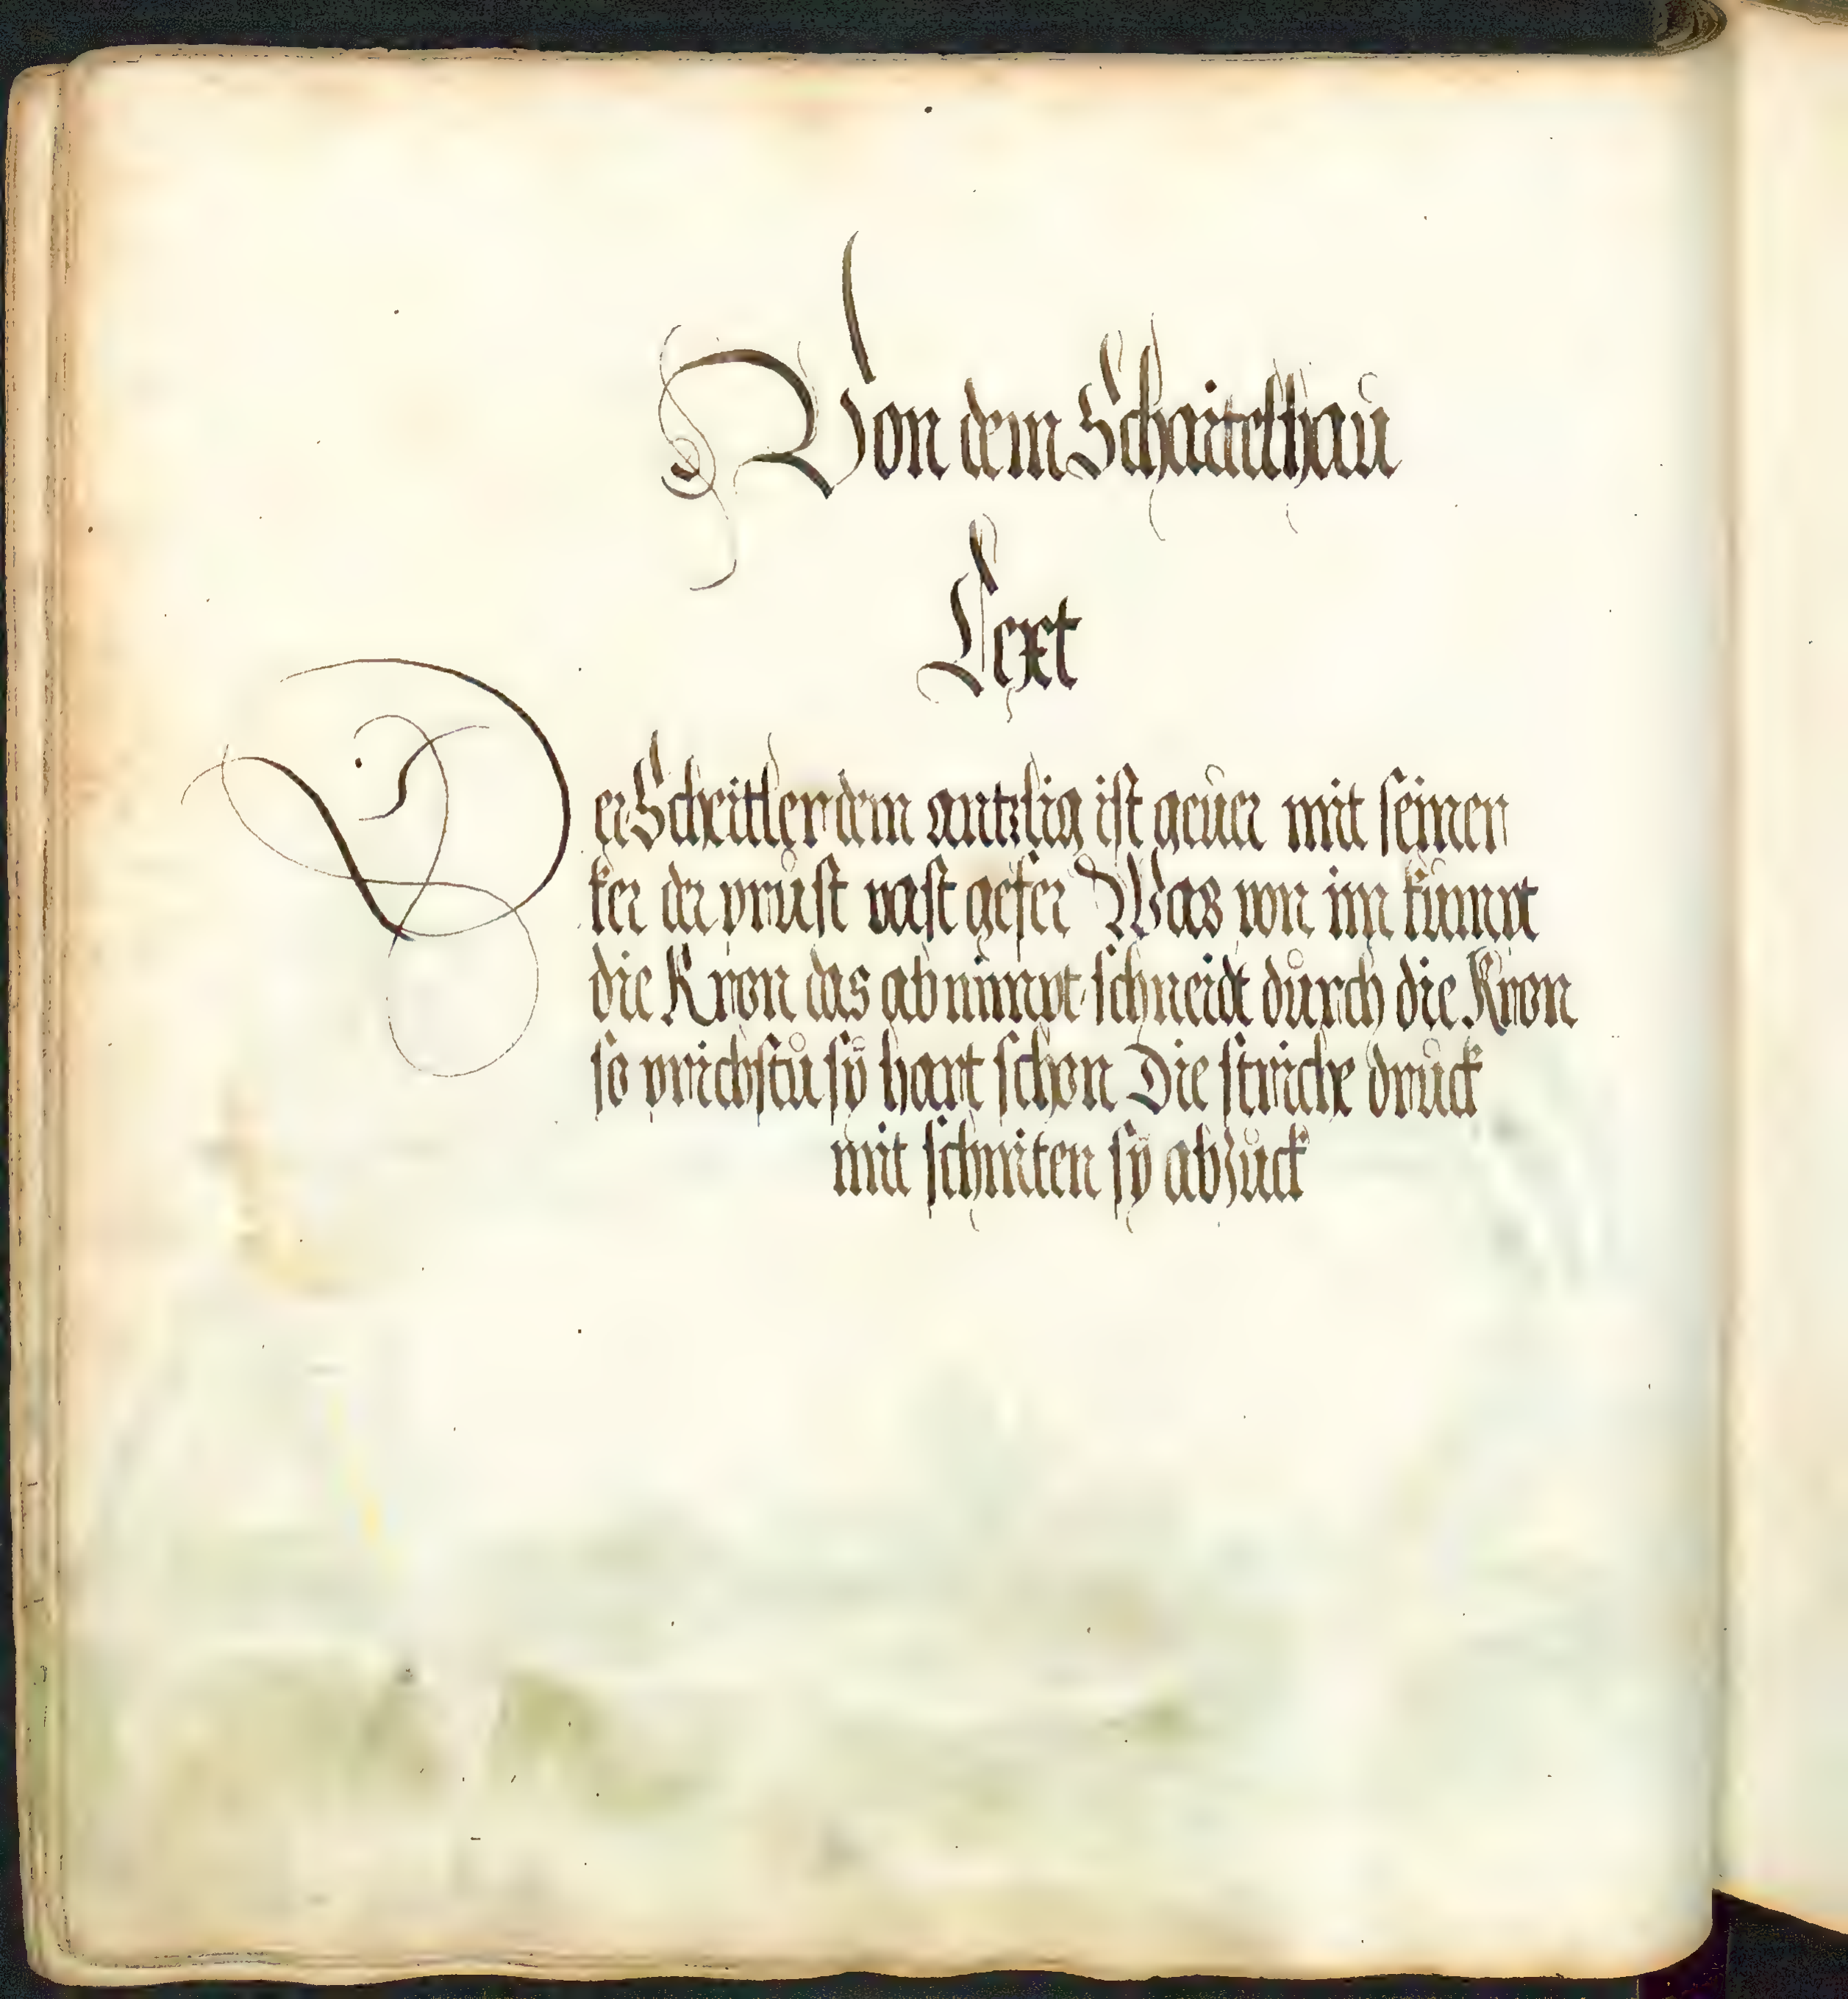 Von dem Schaitelhau
Text
Der Scheitler dem antzlig ist geuer mit seiner
ker der prust vast gefer Was von im kumpt
die Kron das ab nimpt schneidt durch die Kron
so prichstu sÿ hart schon Die striche druck
mit schniten sÿ abzuck